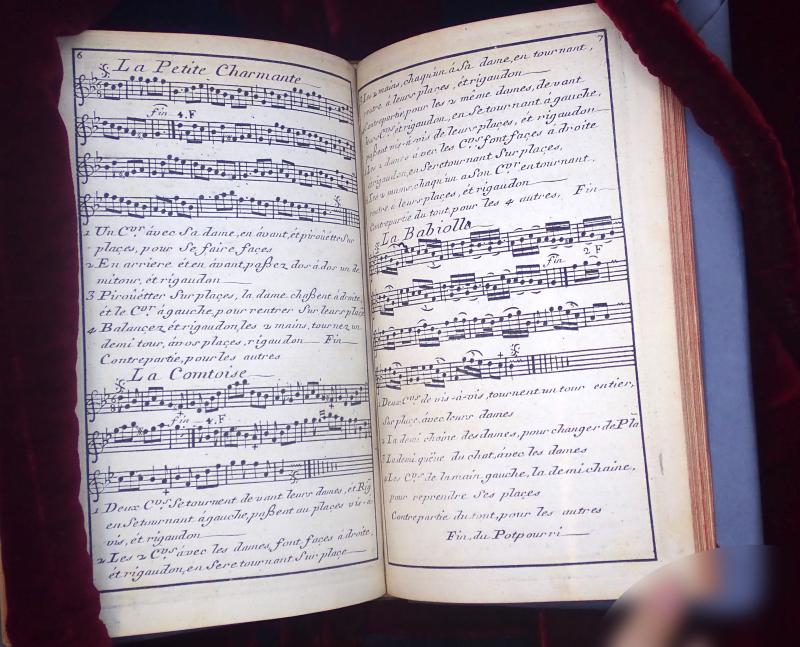 6
La Petite Charmante
fin 4. F
1 Un C.vr avec Sa dame, en avant, et piroüette Sur
plaçes, pour Se faire façes
2. En arriere et en avant, paßez dos à dos un de
mitour, et rigaudon
3 Piroüetter Sur plaçes, la dame chaßent à droite
et le C.vr à gauche, pour rentrer Sur leurs place
4 Balançez et rigaudon, les 2 mains, tournez un
demi tour, à vos plaçes, rigaudon Fin
Contrepartie, pour les autres
La Comtoise
fin 4. F
1. Deux C.vrs Se tournent devant leurs dames, et Rig
en Se tournant à gauche, paßent au plaçes vis-à-
vis, et rigaudon
2 Les 2 C.vrs avec les dames, font façes à droite,
et rigaudon, en Se retournant Sur place
7
Les 2 mains, chaqu'un à Sa dame, en tournant,
rentre à leurs plaçes, et rigaudon
Contrepartie pour les 2 même dames, devant
leurs C.vrs et rigaudon, en Se tournant à gauche,
paßent vis-à-vis de leurs plaçes, et rigaudon
Les 2 dames avec les C.vrs font façes à droite
rigaudon, en Se retournant Sur plaçes,
Les 2 mains, chaqu'un a Son C.vr en tournant,
rentre à leurs plaçes, et rigaudon
Contrepartie du tout pour les 4 autres, Fin
La Babiolle
fin 2 F
1. Deux C.vrs de vis-à-vis, tournent un tour entier,
Sur place, avec leurs dames
2 La demi chaine des dames, pour changer de Pla
3 La demi queüe du chat, avec les dames
4 Les C.vrs de la main gauche, la demi chaine,
pour reprendre Ses plaçes
Contrepartie du tout, pour les autres
Fin, du Potpourri